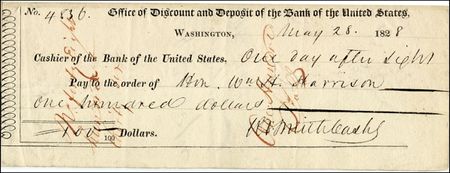 No. 4836. Office of Discount and Deposit of the Bank of the United States.
WASHINGTON, May 28. 1828
Cashier of the Bank of the United States. One day after sight
Pay to the order of Hon. Wm H. Harrison
one hundred dollars
100 100 Dollars. Smith Cashr